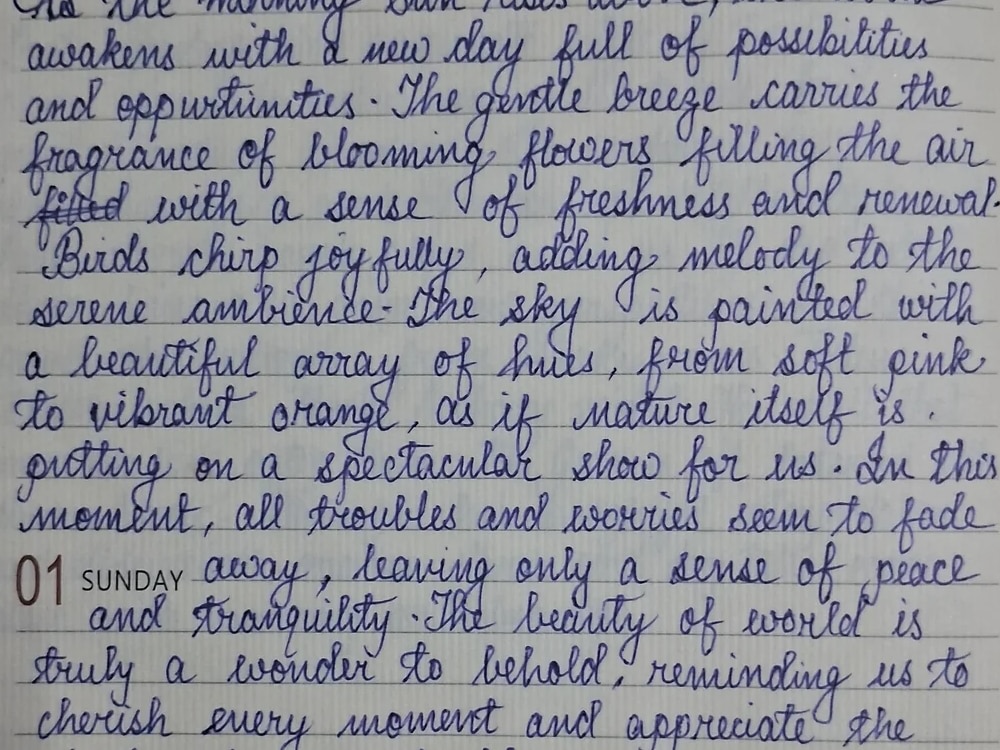 As the morning sun rises above, the
awakens with a new day full of possibilities
and oppurtunities. The gentle breeze carries the
fragrance of blooming flowers filling the air
filled with a sense of freshness and renewal.
Birds chirp joyfully, adding melody to the
serene ambience. The sky is painted with
a beautiful array of hues, from soft pink
to vibrant orange, as if nature itself is.
putting on a spectacular show for us. In this
moment, all troubles and worries seem to fade
01 SUNDAY away, leaving only a sense of peace
and tranquility. The beauty of world is
truly a wonder to behold, reminding us to
cherish every moment and appreciate the